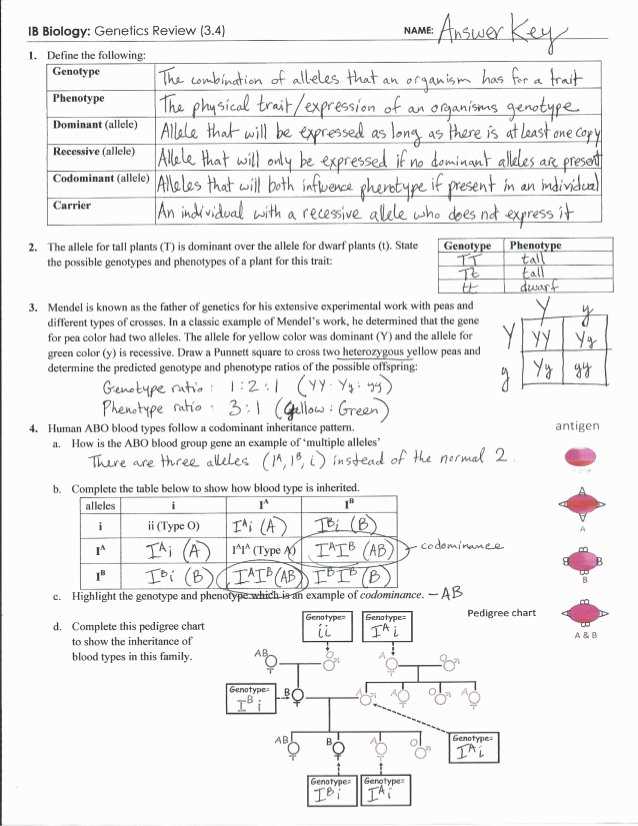 IB Biology: Genetics Review (3.4) NAME: Answer Key
1. Define the following:
Genotype The combination of alleles that an organism has for a trait
Phenotype The physical trait/expression of an organisms genotype
Dominant (allele) Allele that will be expressed as long as there is at least one copy
Recessive (allele) Allele that will only be expressed if no dominant alleles are present
Codominant (allele) Alleles that will both influence phenotype if present in an individual
Carrier An individual with a recessive allele who does not express it
2. The allele for tall plants (T) is dominant over the allele for dwarf plants (t). State
the possible genotypes and phenotypes of a plant for this trait:
Genotype Phenotype
TT tall
Tt tall
tt dwarf
3. Mendel is known as the father of genetics for his extensive experimental work with peas and
different types of crosses. In a classic example of Mendel's work, he determined that the gene
for pea color had two alleles. The allele for yellow color was dominant (Y) and the allele for
green color (y) is recessive. Draw a Punnett square to cross two heterozygous yellow peas and
determine the predicted genotype and phenotype ratios of the possible offspring:
Y y
Y YY Yy
y Yy yy
Genotype ratio : 1:2:1 (YY:Yy:yy)
Phenotype ratio : 3:1 (Yellow : Green)
4. Human ABO blood types follow a codominant inheritance pattern.
a. How is the ABO blood group gene an example of 'multiple alleles'
There are three alleles (Iᴬ, Iᴮ, i) instead of the normal 2.
b. Complete the table below to show how blood type is inherited.
alleles i Iᴬ Iᴮ
i ii (Type O) Iᴬi (A) Iᴮi (B)
Iᴬ Iᴬi (A) IᴬIᴬ (Type A) IᴬIᴮ (AB) codominance
Iᴮ Iᴮi (B) IᴬIᴮ (AB) IᴮIᴮ (B)
c. Highlight the genotype and phenotype which is an example of codominance. – AB
d. Complete this pedigree chart
to show the inheritance of
blood types in this family.
antigen
A
A
A
B
B
B
A & B
Pedigree chart
Genotype=
ii
Genotype=
Iᴬi
AB O A O
Genotype=
Iᴮi
B A A O A
AB B A O
Genotype=
Iᴬi
Genotype=
Iᴮi
Genotype=
Iᴬi